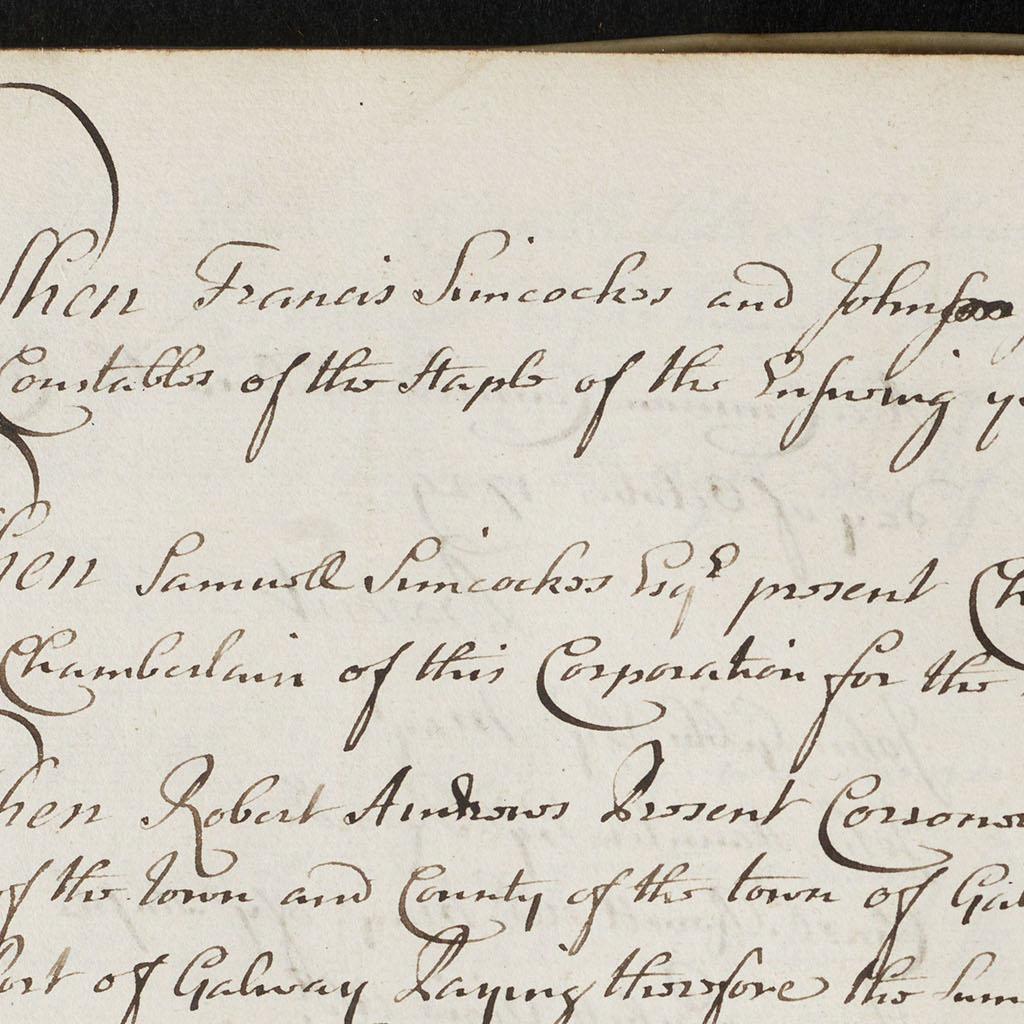 Then Francis Simcockes and John
Constables of the Staple of the Ensueing
Then Samuell Simcockes Esqr present
Chamberlain of this Corporation for the
Then Robert Andrews Present
of the Town and County of the town of
of Galway Paying therefore the Sum